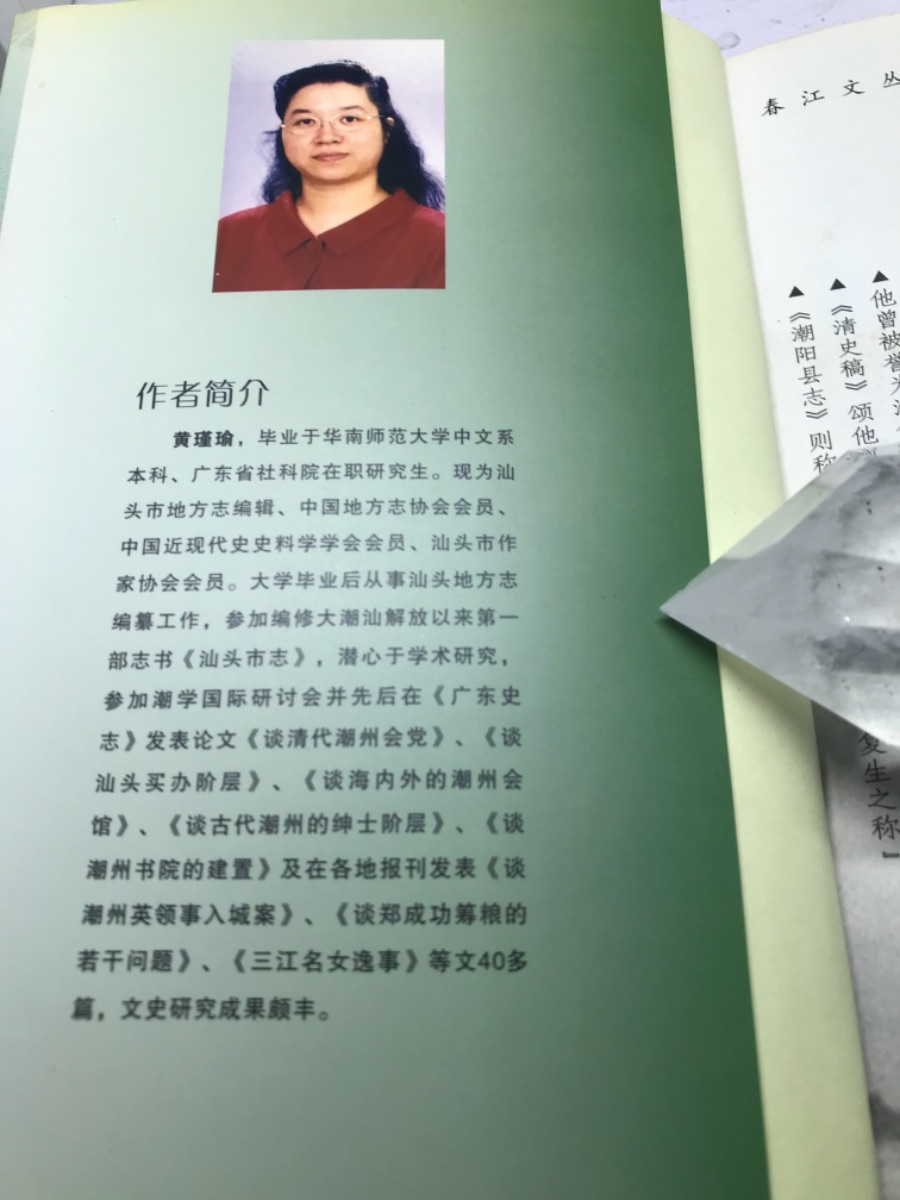 作者简介
黄瑾瑜，毕业于华南师范大学中文系
本科、广东省社科院在职研究生。现为汕
头市地方志编辑、中国地方志协会会员、
中国近现代史史料学学会会员、汕头市作
家协会会员。大学毕业后从事汕头地方志
编纂工作，参加编修大潮汕解放以来第一
部志书《汕头市志》，潜心于学术研究，
参加潮学国际研讨会并先后在《广东史
志》发表论文《谈清代潮州会党》、《谈
汕头买办阶层》、《谈海内外的潮州会
馆》、《谈古代潮州的绅士阶层》、《谈
潮州书院的建置》及在各地报刊发表《谈
潮州英领事入城案》、《谈郑成功筹粮的
若干问题》、《三江名女逸事》等文40多
篇，文史研究成果颇丰。
春江文丛
▲他曾被誉为
▲《清史稿》颂他
▲《潮阳县志》则称
复生之称